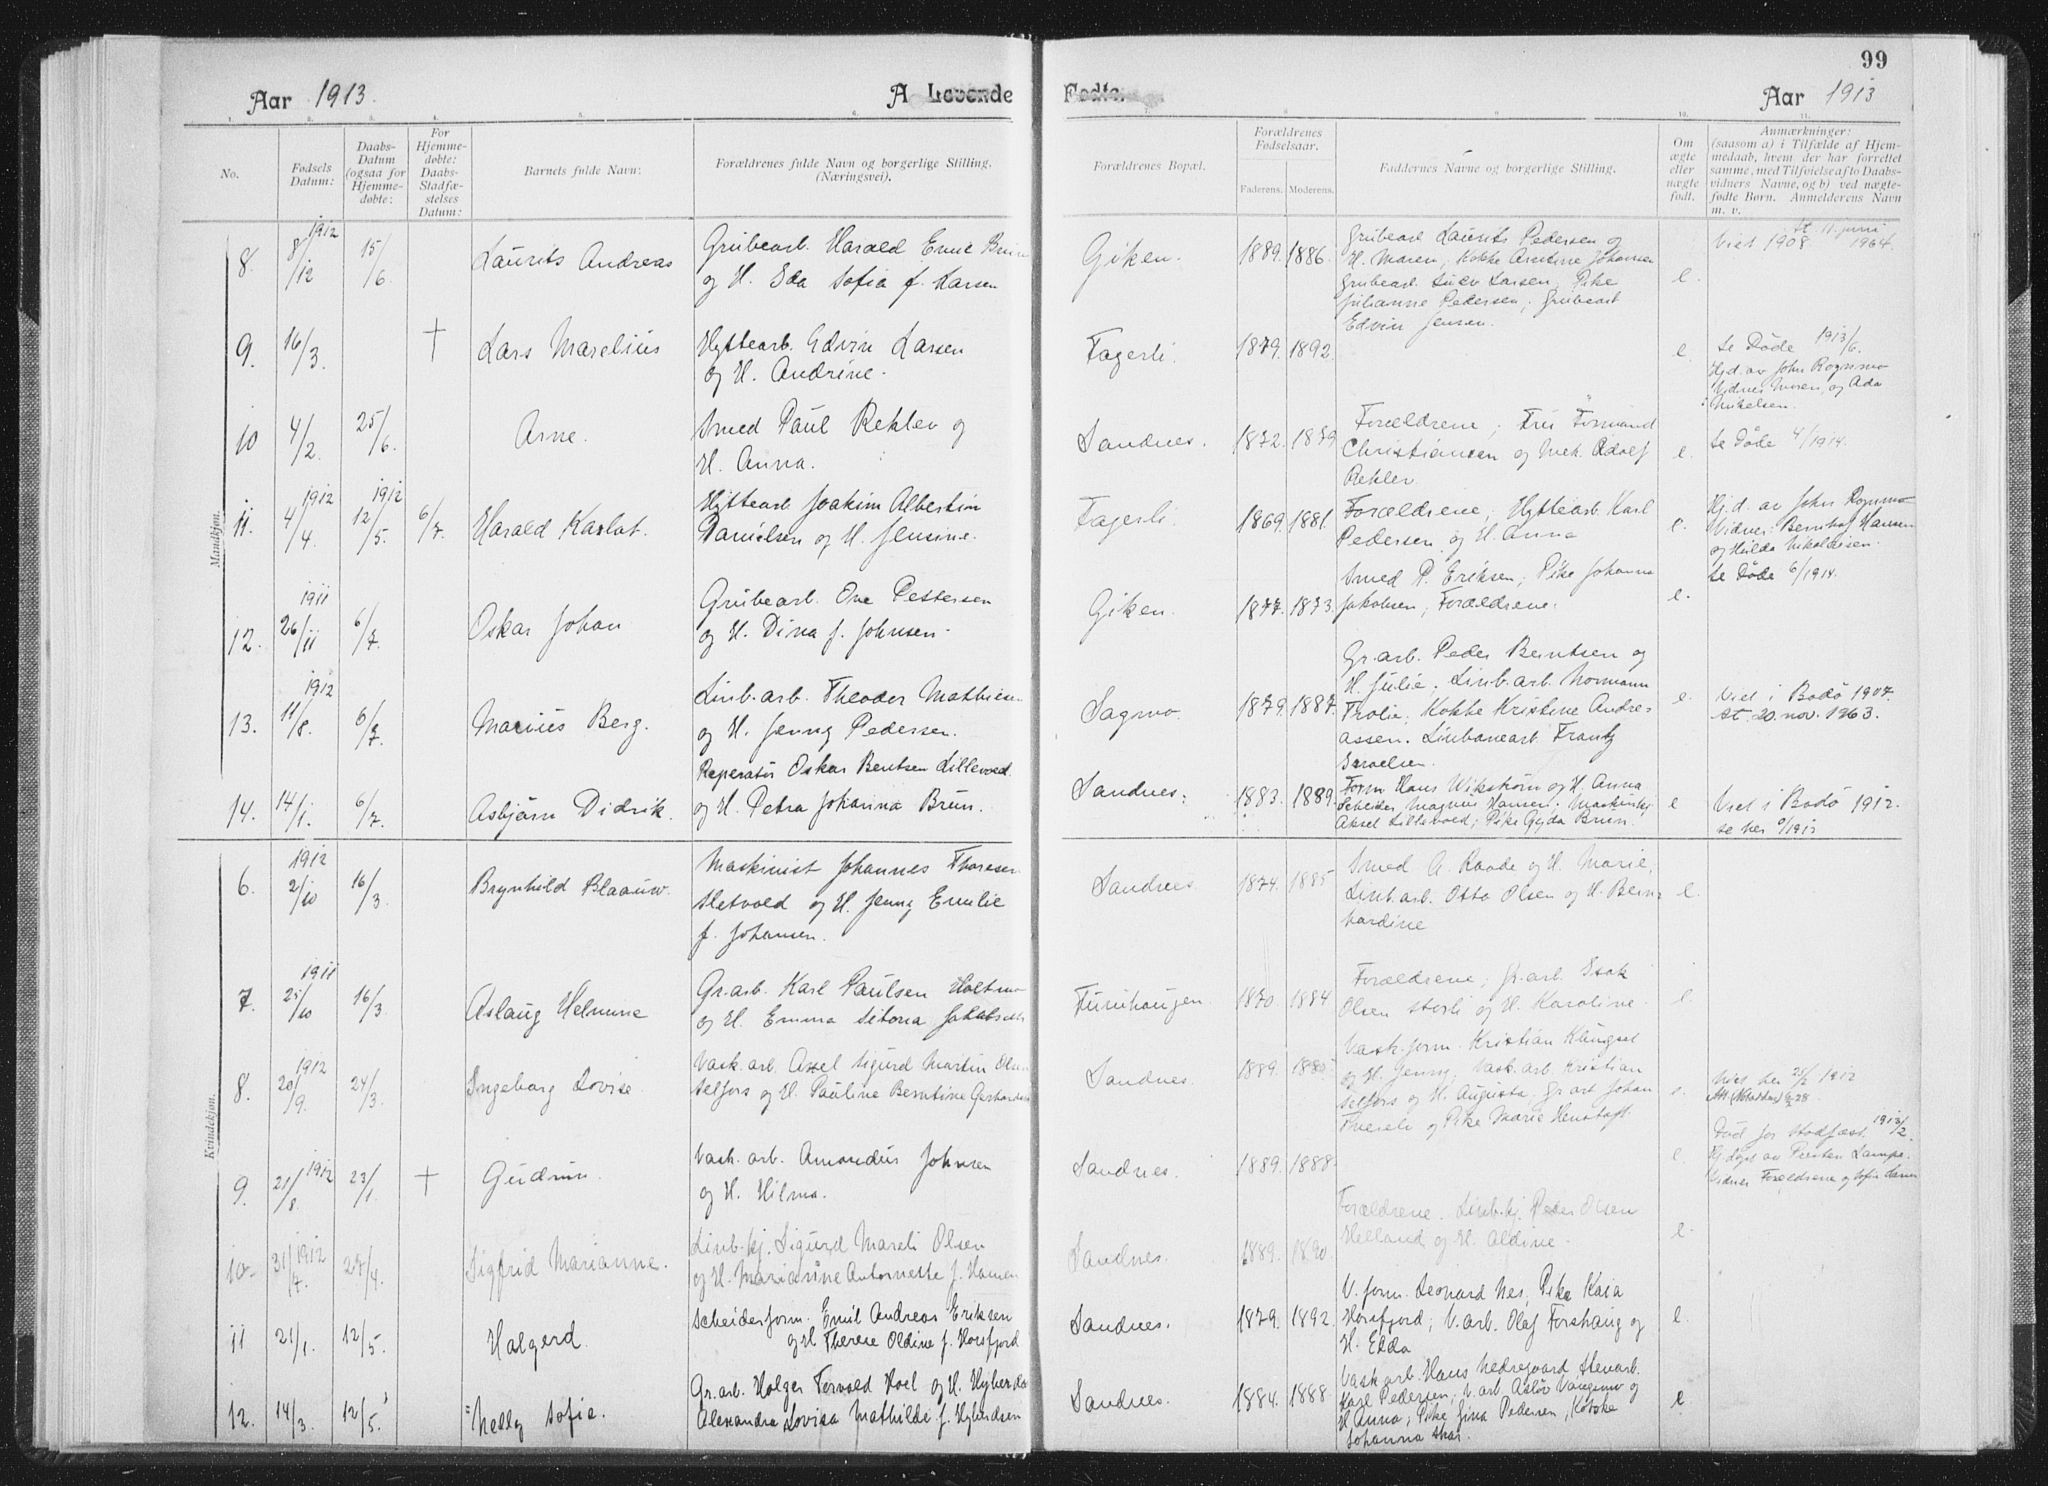 99
Aar 1913. A Levende Fødte. Aar 1913
1. 2. 3. 4. 5. 6. 7. 8. 9. 10. 11.
No.
Fødsels Datum:
Daabs-Datum (ogsaa for Hjemme-døbte:
For Hjemme-døbte: Daabs-Stadfæ-stelses Datum:
Barnets fulde Navn:
Forældrenes fulde Navn og borgerlige Stilling. (Næringsvei).
Forældrenes Bopæl.
Forældrenes Fødselsaar.
Faderens. Moderens.
Faddernes Navne og borgerlige Stilling.
Om ægte eller nægte født.
Anmærkninger:
(saasom a) i Tilfælde af Hjem-
medaab, hvem der har forrettet
samme, med Tilføielse af to Daabs-
vidners Navne, og b) ved nægte-
fødte Børn. Anmelderens Navn
m. v.
Mandkjøn.
8. 8/12 1912 15/6 Laurits Andreas
Grubearb. Harald Emil Brun
og H. Ida Sofia f. Larsen
Giken. 1889. 1886.
Grubearb Laurits Pedersen og
H. Maren; Kokke Arntine Johansen
Grubearb. Ludv Larsen; Pike
Julianne Pedersen; Grubearb
Edvin Jensen.
e.
Viet 1908 11. juni 1964.
9. 16/3. † Lars Marelius
Hyttearb. Edvin Larsen
og H. Andrine.
Fagerli. 1879. 1892. e.
se Døde 1913/6.
Hjd. av John Rognmo
Vidner Maren og Ada
Mikelsen.
10 4/2. 25/6. Arne.
Smed Paul Rehlev og
H. Anna.
Sandnes. 1872. 1879
Forældrene; Fru Formand
Christiansen og Mek. Adolf
Rehlev
e.
se Døde 4/1914.
11. 1912 4/4. 1912 12/5. 6/7. Harald Karlot.
Hyttearb Joakim Albertin
Danielsen og H. Jensine.
Fagerli. 1869. 1881.
Forældrene; Hyttearb. Karl
Pedersen og H. Anna
e.
Hj.d. av John Rognmo
Vidner: Bernhof Hansen
og Hilda Nikolaisen.
se Døde 6/1914.
12. 1911 26/11 6/7. Oskar Johan
Grubearb. Ove Pettersen
og H. Dina f. Johnsen.
Giken. 1877. 1873.
Smed P. Eriksen; Pike Johanna
Jakobsen; Forældrene.
e.
13. 1912 11/8. 6/7. Marius Berg.
Linb.arb. Theodor Mathisen
og H. Jenny Pedersen.
Sagmo. 1879. 1887.
Gr.arb. Peder Berntsen og
H. Julie; Linb.arb. Normann
Trolie; Kokke Kristine Andre-
assen. Linbanearb. Frantz
Israelsen.
e.
Viet i Bodø 1907.
At. 20. nov. 1963.
14. 14/1. 6/7. Asbjørn Didrik.
Reperatør Oskar Bentsen Lillevold
og H. Petra Johanna Brun.
Sandnes. 1883. 1889.
Form Hans Wikstrøm og H. Anna
Scheider Magnus Hansen; Maskinkj
Aksel Lillevold; Pike Gyda Brun.
e
Viet i Bodø 1912.
Kvindekjøn.
6. 1912 2/10 16/3. Brynhild Blaauw.
Maskinist Johannes Thoresen
Sletvold og H. Jenny Emilie
f. Johansen.
Sandnes. 1874. 1885
Smed A. Raade og H. Marie,
Linb.arb. Otto Olsen og H. Bern-
hardine
e.
7. 1911 25/10 16/3. Aslaug Helmine
Gr.arb. Karl Paulsen Holtmo
og H. Emma Sibona Jakobsen
Furuhaugen. 1870 1884
Forældrene; Gr.arb. Isak
Olsen Storli og H. Karoline.
e.
8. 1912 20/9. 24/3. Ingeborg Lovise.
Vask.arb. Axel Sigurd Martin Olsen
Selfors og H. Pauline Berntine Gerhardsen
Sandnes 1889. 1885
Vask.form. Kristian Klungsel
og H. Jenny, Vask.arb Kristian
Selfors og H. Augusta, Gr.arb Johan
Tverelv og Pike Marie Henstaft.
e.
Viet her 25/2 1912
9. 21/8. 1912 23/1. † Gudrun.
Vask. arb. Amandus Johnsen
og H. Hilma.
Sandnes. 1889. 1888. e.
Død før stadfæst. 1913/2.
Hj.døpt av Kirsten Lampe.
Vidner Forældrene og Sofie Larsen
10. 31/7. 1912 27/4. Sigfrid Marianne.
Linb.kj. Sigurd Mareli Olsen
og H. Marianne Antonette f. Hansen
Sandnes. 1889. 1890.
Forældrene. Linb.kj. Peder Olsen
Helland og H. Aldine.
e.
11 21/1. 12/5. Halgerd.
Scheiderform. Emil Andreas Eriksen
og H Therese Oldine f. Horsfjord
Sandnes. 1879. 1892.
V. form. Leonard Nes, Pike Kaia
Horsfjord; V. arb. Olaf Forshaug og
H. Edda
e.
12. 14/3. 12/5. Nelly Sofie.
Gr.arb. Holger Torvold Hoel og H. Hyberda
Alexandra Lovisa Mathilde f. Hyberdsen
Sandnes. 1884. 1888
Vask arb. Hans Nedregaard, Stenarb.
Karl Pedersen; V. arb Asløv Vangsmo og
H Anna; Pike Jina Pedersen, Kokke
Johanna Skar.
e